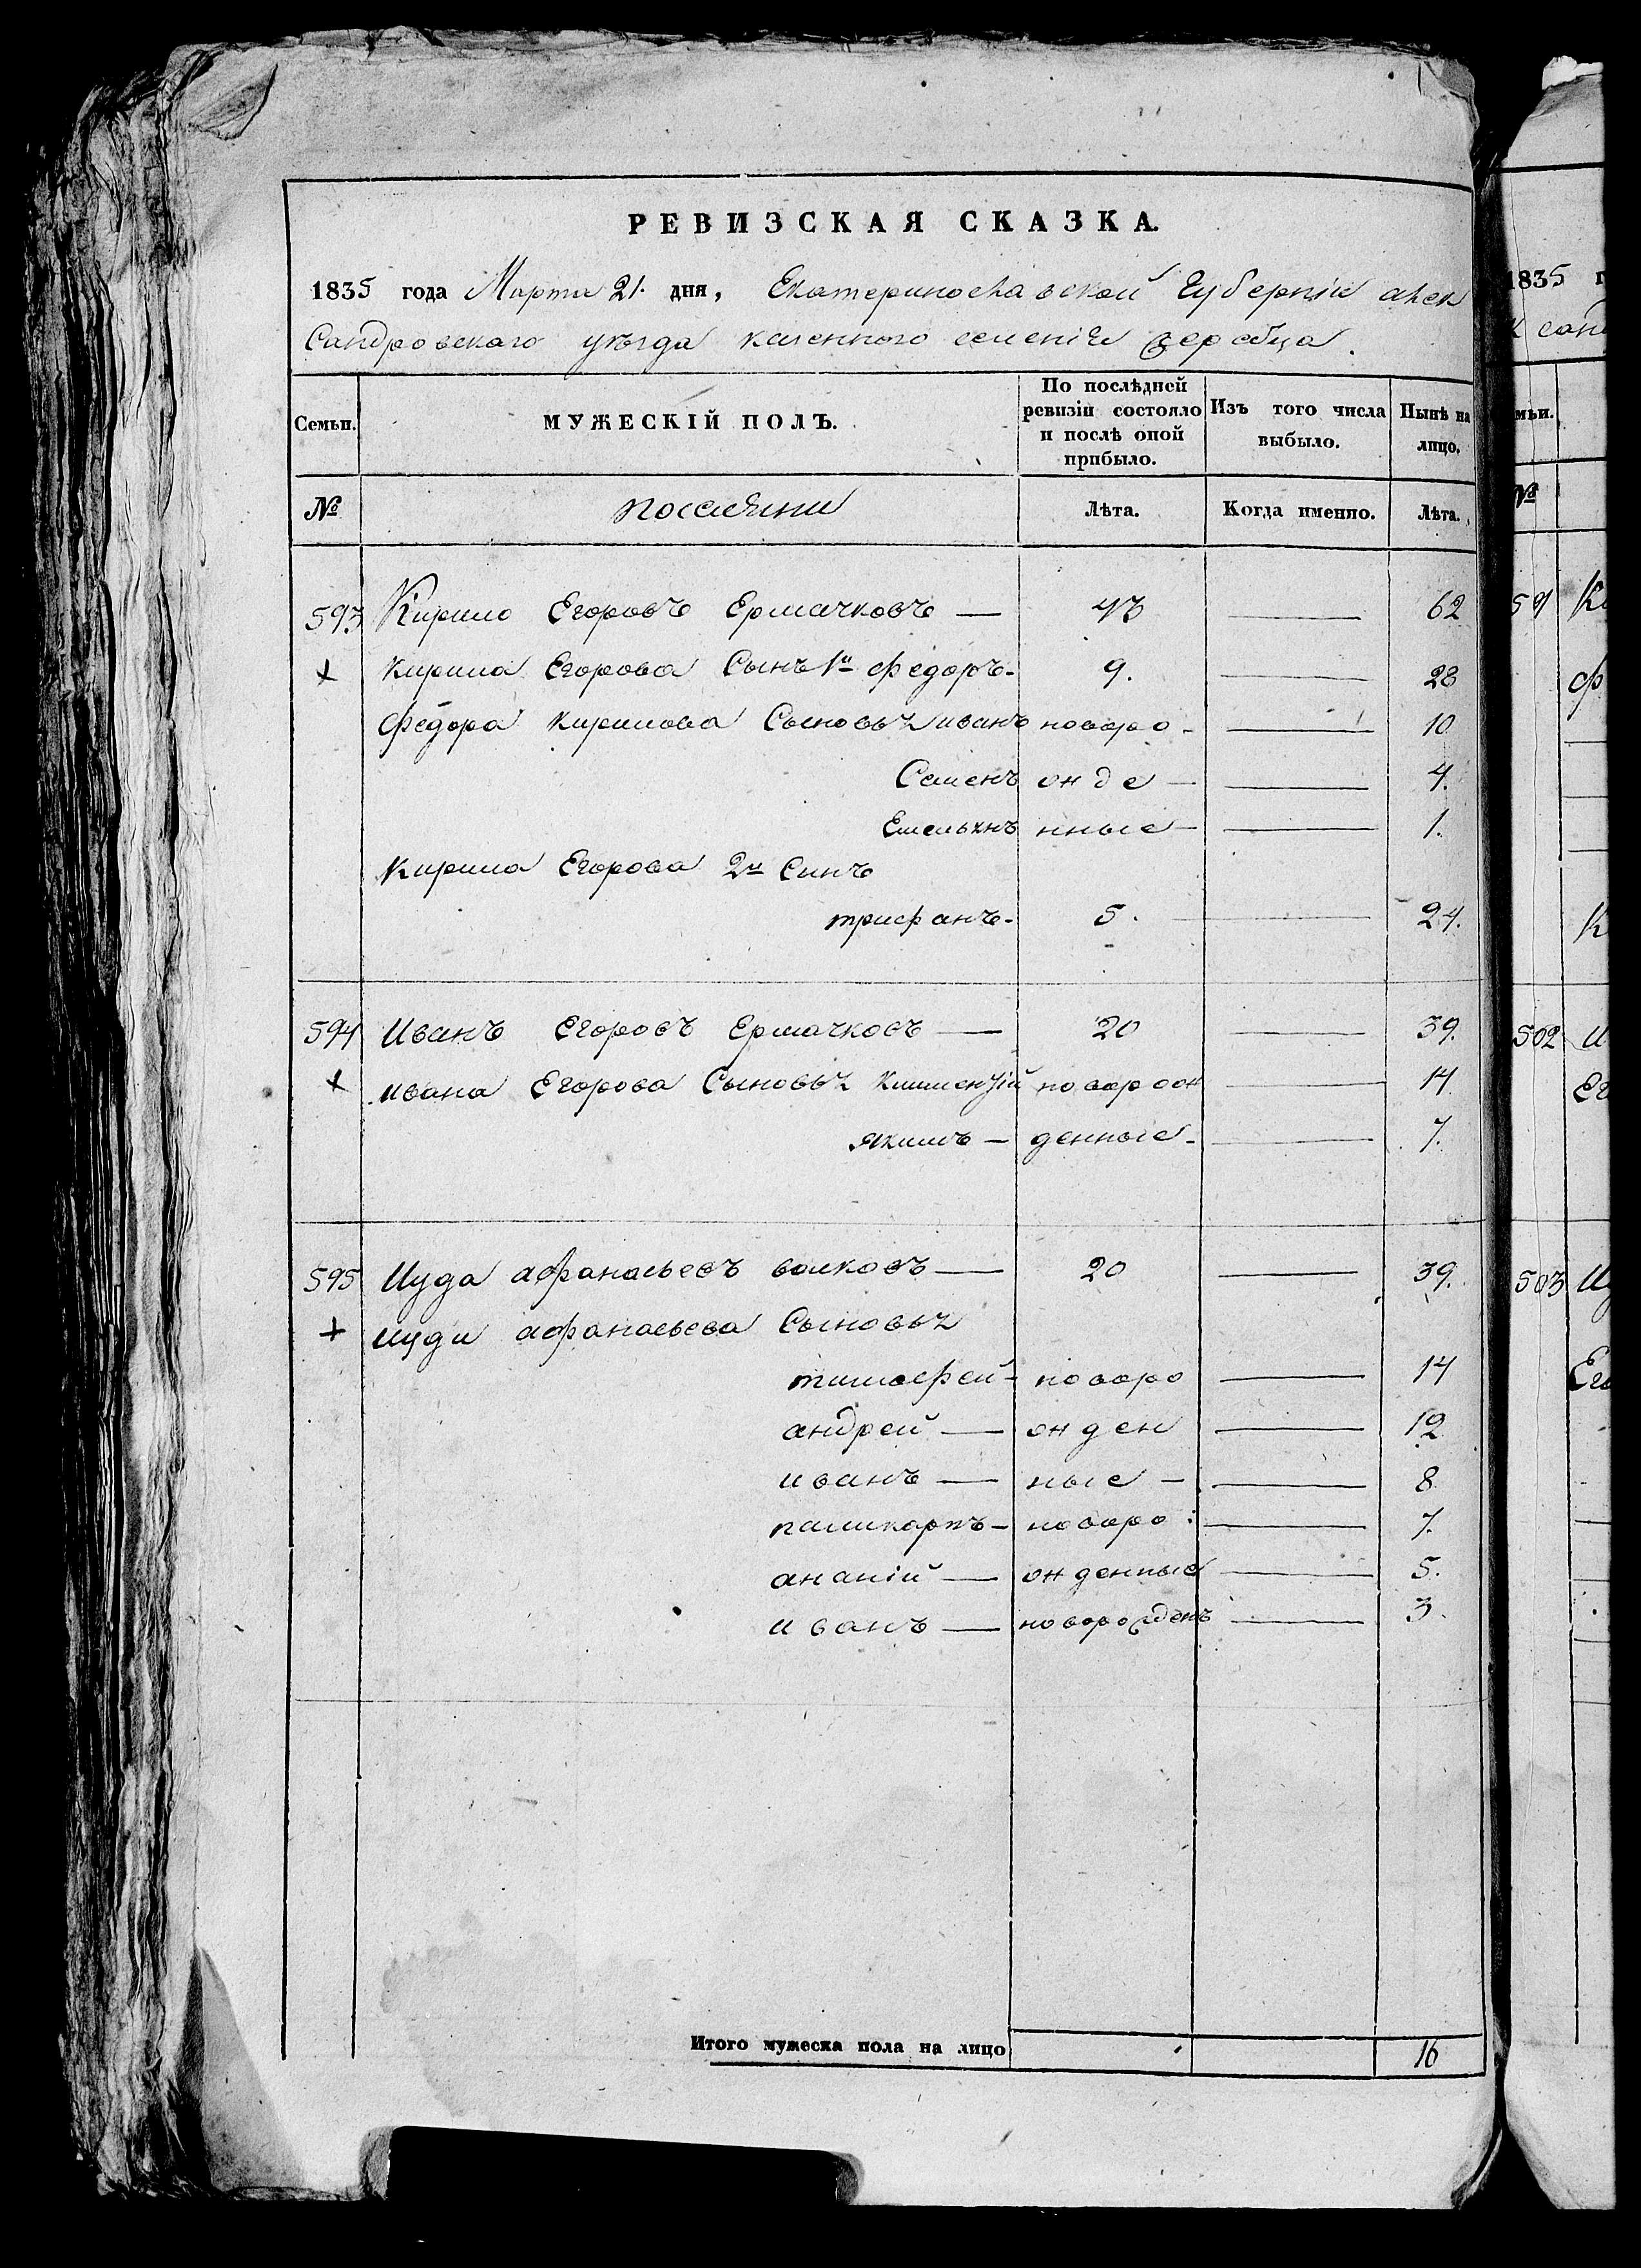 РЕВИЗСКАЯ СКАЗКА.
1835 года Марта 21. дня, Екатеринославской Губерніи алек
сандровскаго уезда казенного селенія
Семьи. МУЖЕСКІЙ ПОЛЪ. По послѣдней ревизіи состояло и послѣ оной прибыло. Изъ того числа выбыло. Нынѣ на лицо.
№ поселяни Лѣта. Когда именно. Лѣта.
593 Кирило Егоровъ Ермачковъ — 43 — 62
+ Кирила Егорова Сынъ 1й федоръ- 9. — 28
федора кирилова Сыновья иванъ новоро- — 10
Семенъ жде — — 4.
Емельянъ нные — — 1.
Кирила Егорова 2й Синъ
трифанъ- 5. — 24.
594 Иванъ Егоровъ Ермачковъ — 20 — 39.
+ ивана Егорова Сыновья новорож — 14
якимъ — денные- — 7.
595 Иуда афанасьевъ волковъ — 20 — 39.
+ иуди афанасьева Сыновья
тимофей- новоро — 14
андрей — жден — 12
иванъ — ные — — 8
паликарпъ- новоро: — 7.
ананій — жденные — 5.
иванъ — новорожденъ — 3.
Итого мужеска пола на лицо 16
1835 г
к сан
мьи.
№
591 Ки
ф
К
502 И
Ег
503 Иу
Его